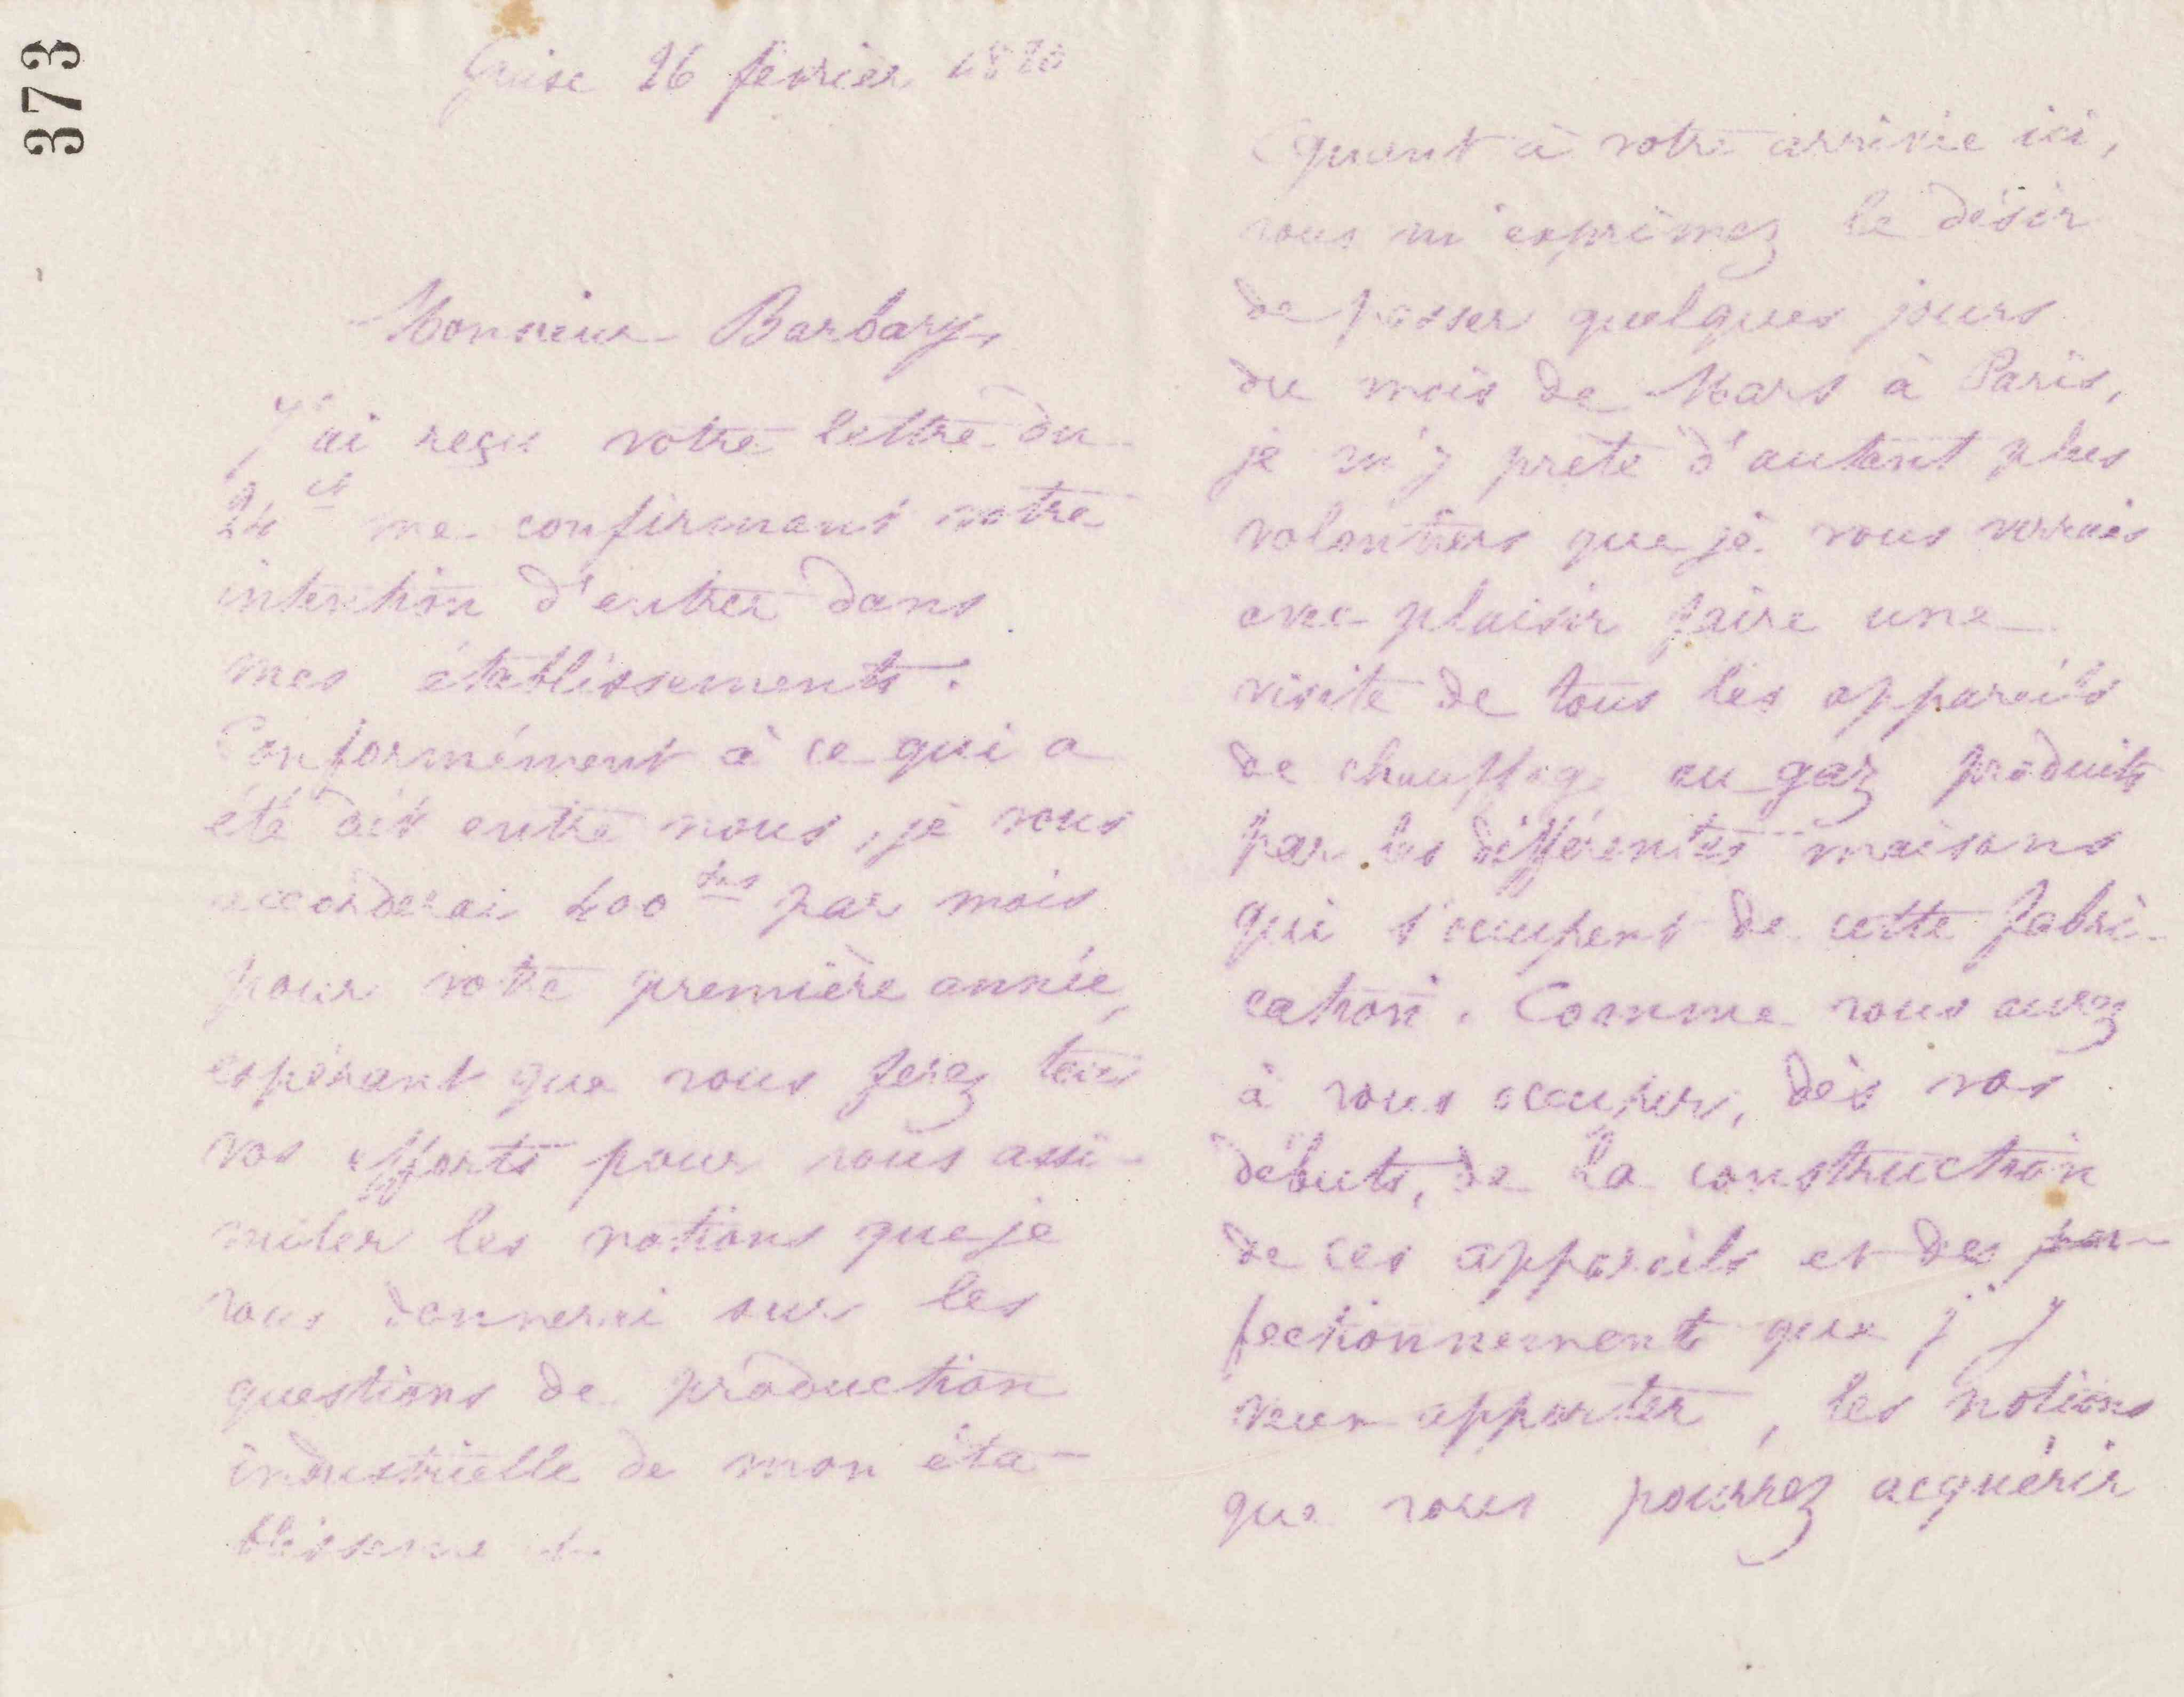 373
Guise 26 février 1880
Monsieur Barbary,
J'ai reçu votre lettre du
24 ct me confirmant votre
intention d'entrer dans
mes établissements.
Conformément à ce qui a
été dit entre nous, je vous
accorderai 400 frs par mois
pour votre première année,
espérant que vous ferez tous
vos efforts pour vous assi-
miler les notions que je
vous donnerai sur les
questions de production
industrielle de mon éta-
blissement.
Quant à votre arrivée ici,
vous m'exprimez le désir
de passer quelques jours
du mois de Mars à Paris,
je m'y prete d'autant plus
volontiers que je vous verrais
avec plaisir faire une
visite de tous les appareils
de chauffage au gaz produits
par les différentes maisons
qui s'occupent de cette fabri-
cation. Comme vous aurez
à vous occuper, dès vos
débuts, de la construction
de ces appareils et des per-
fectionnements que j'y
veux apporter, les notions
que vous pourrez acquérir